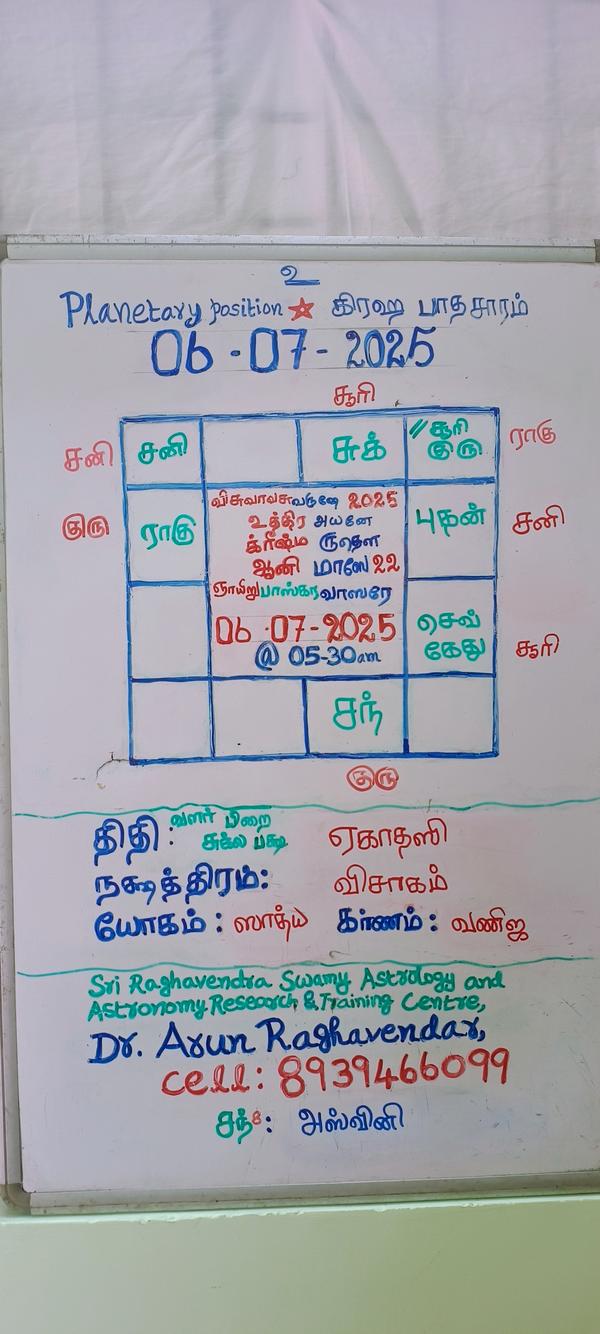 உ
Planetary position ☆ கிரஹ பாதசாரம்
06-07-2025
சூரி
சனி சனி சுக் // சூரி குரு ராகு
குரு ராகு புதன் சனி
விசுவாவசுவருஷே 2025
உத்திர அயனே
க்ரீஷ்ம ருதௌ
ஆனி மாஸே 22
ஞாயிறு பாஸ்கரவாஸரே
06-07-2025
@ 05-30am
செவ் கேது சூரி
சந்
குரு
திதி: வளர் பிறை சுக்ல பக்ஷ ஏகாதஸி
நக்ஷத்திரம்: விசாகம்
யோகம்: ஸாத்ய கர்ணம்: வணிஜ
Sri Raghavendra Swamy Astrology and
Astronomy Research & Training Centre,
Dr. Arun Raghavendar,
cell: 8939466099
சந்8: அஸ்வினி